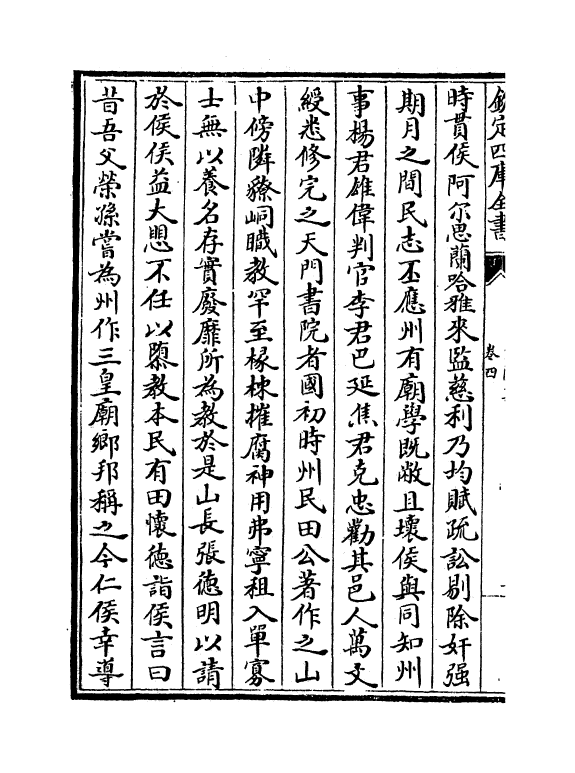 欽定四庫全書
卷四
時貫侯阿尔思蘭哈雅來監慈利乃均賦疏訟剔除奸强
期月之間民志丕應州有廟學既敝且壞侯與同知州
事楊君雄偉判官李君巴延焦君克忠勸其邑人萬文
綬悉修完之天門書院者國初時州民田公著作之山
中傍隣獠峒職教罕至椽栋摧腐神用弗寧租入單寡
士無以養名存實廢靡所為教於是山長張徳明以請
於侯侯益大思不任以隳教本民有田懐徳詣侯言曰
昔吾父榮孫嘗為州作三皇廟鄉邦稱之今仁侯幸導